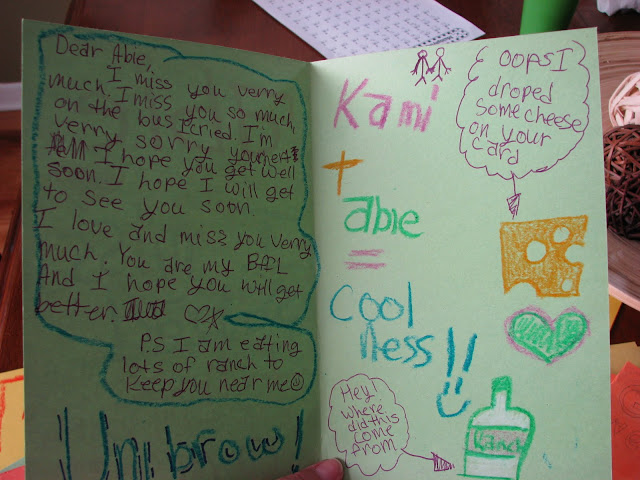 Dear Abie,
I miss you verry
much. I miss you so much
on the bus I cried. I'm
verry sorry your
I hope you get well
soon. I hope I will get
to see you soon.
I love and miss you verry
much. You are my
And I hope you will get
better.
P.S I am eating
lots of ranch to
keep you near me
Unibrow!
Kami
+
abie
=
cool
ness!!
OOPS I
droped
some cheese
on your
card
Hey!
where
did this
come
from